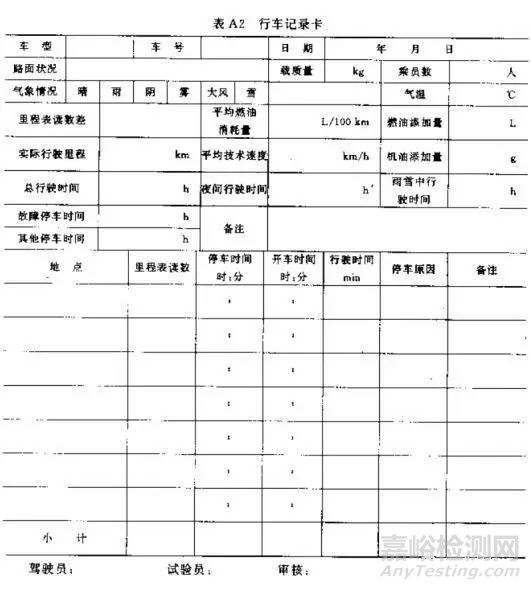 表 A2 行车记录卡
车 型 车 号 日 期 年 月 日
路面状况 载质量 kg 乘员数 人
气象情况 晴 雨 阴 雾 大风 雪 气温 ℃
里程表读数差 平均燃油消耗量 L/100 km 燃油添加量 L
实际行驶里程 km 平均技术速度 km/h 机油添加量 g
总行驶时间 h 夜间行驶时间 h 雨雪中行驶时间 h
故障停车时间 h 备注
其他停车时间 h
地 点 里程表读数 停车时间 时:分 开车时间 时:分 行驶时间 min 停车原因 备注
: :
: :
: :
: :
: :
: :
: :
小 计
驾驶员: 试验员: 审核:
嘉峪检测网
AnyTesting.com